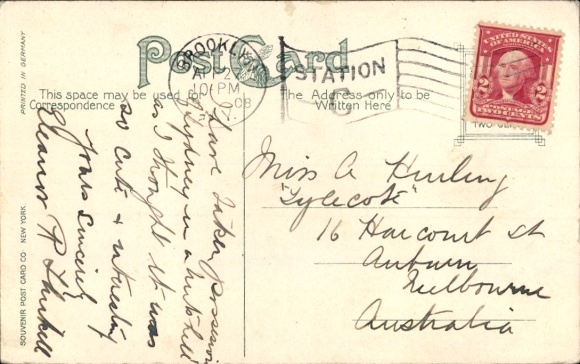 PRINTED IN GERMANY
SOUVENIR POST CARD CO NEW YORK.
Post Card
This space may be used for
Correspondence
the Address only to be
Written Here
BROOKLYN
10 PM
08
N.Y.
STATION
C
UNITED STATES
OF AMERICA
2 2
POSTAGE
TWO CENTS
Have taken possession
of Sydney in a
as I thought it was
so cute & interesting
Yours Sincerely
Eleanor P
Miss A Hurling
"Tylecote"
16 Harcourt St
Auburn
Melbourne
Australia